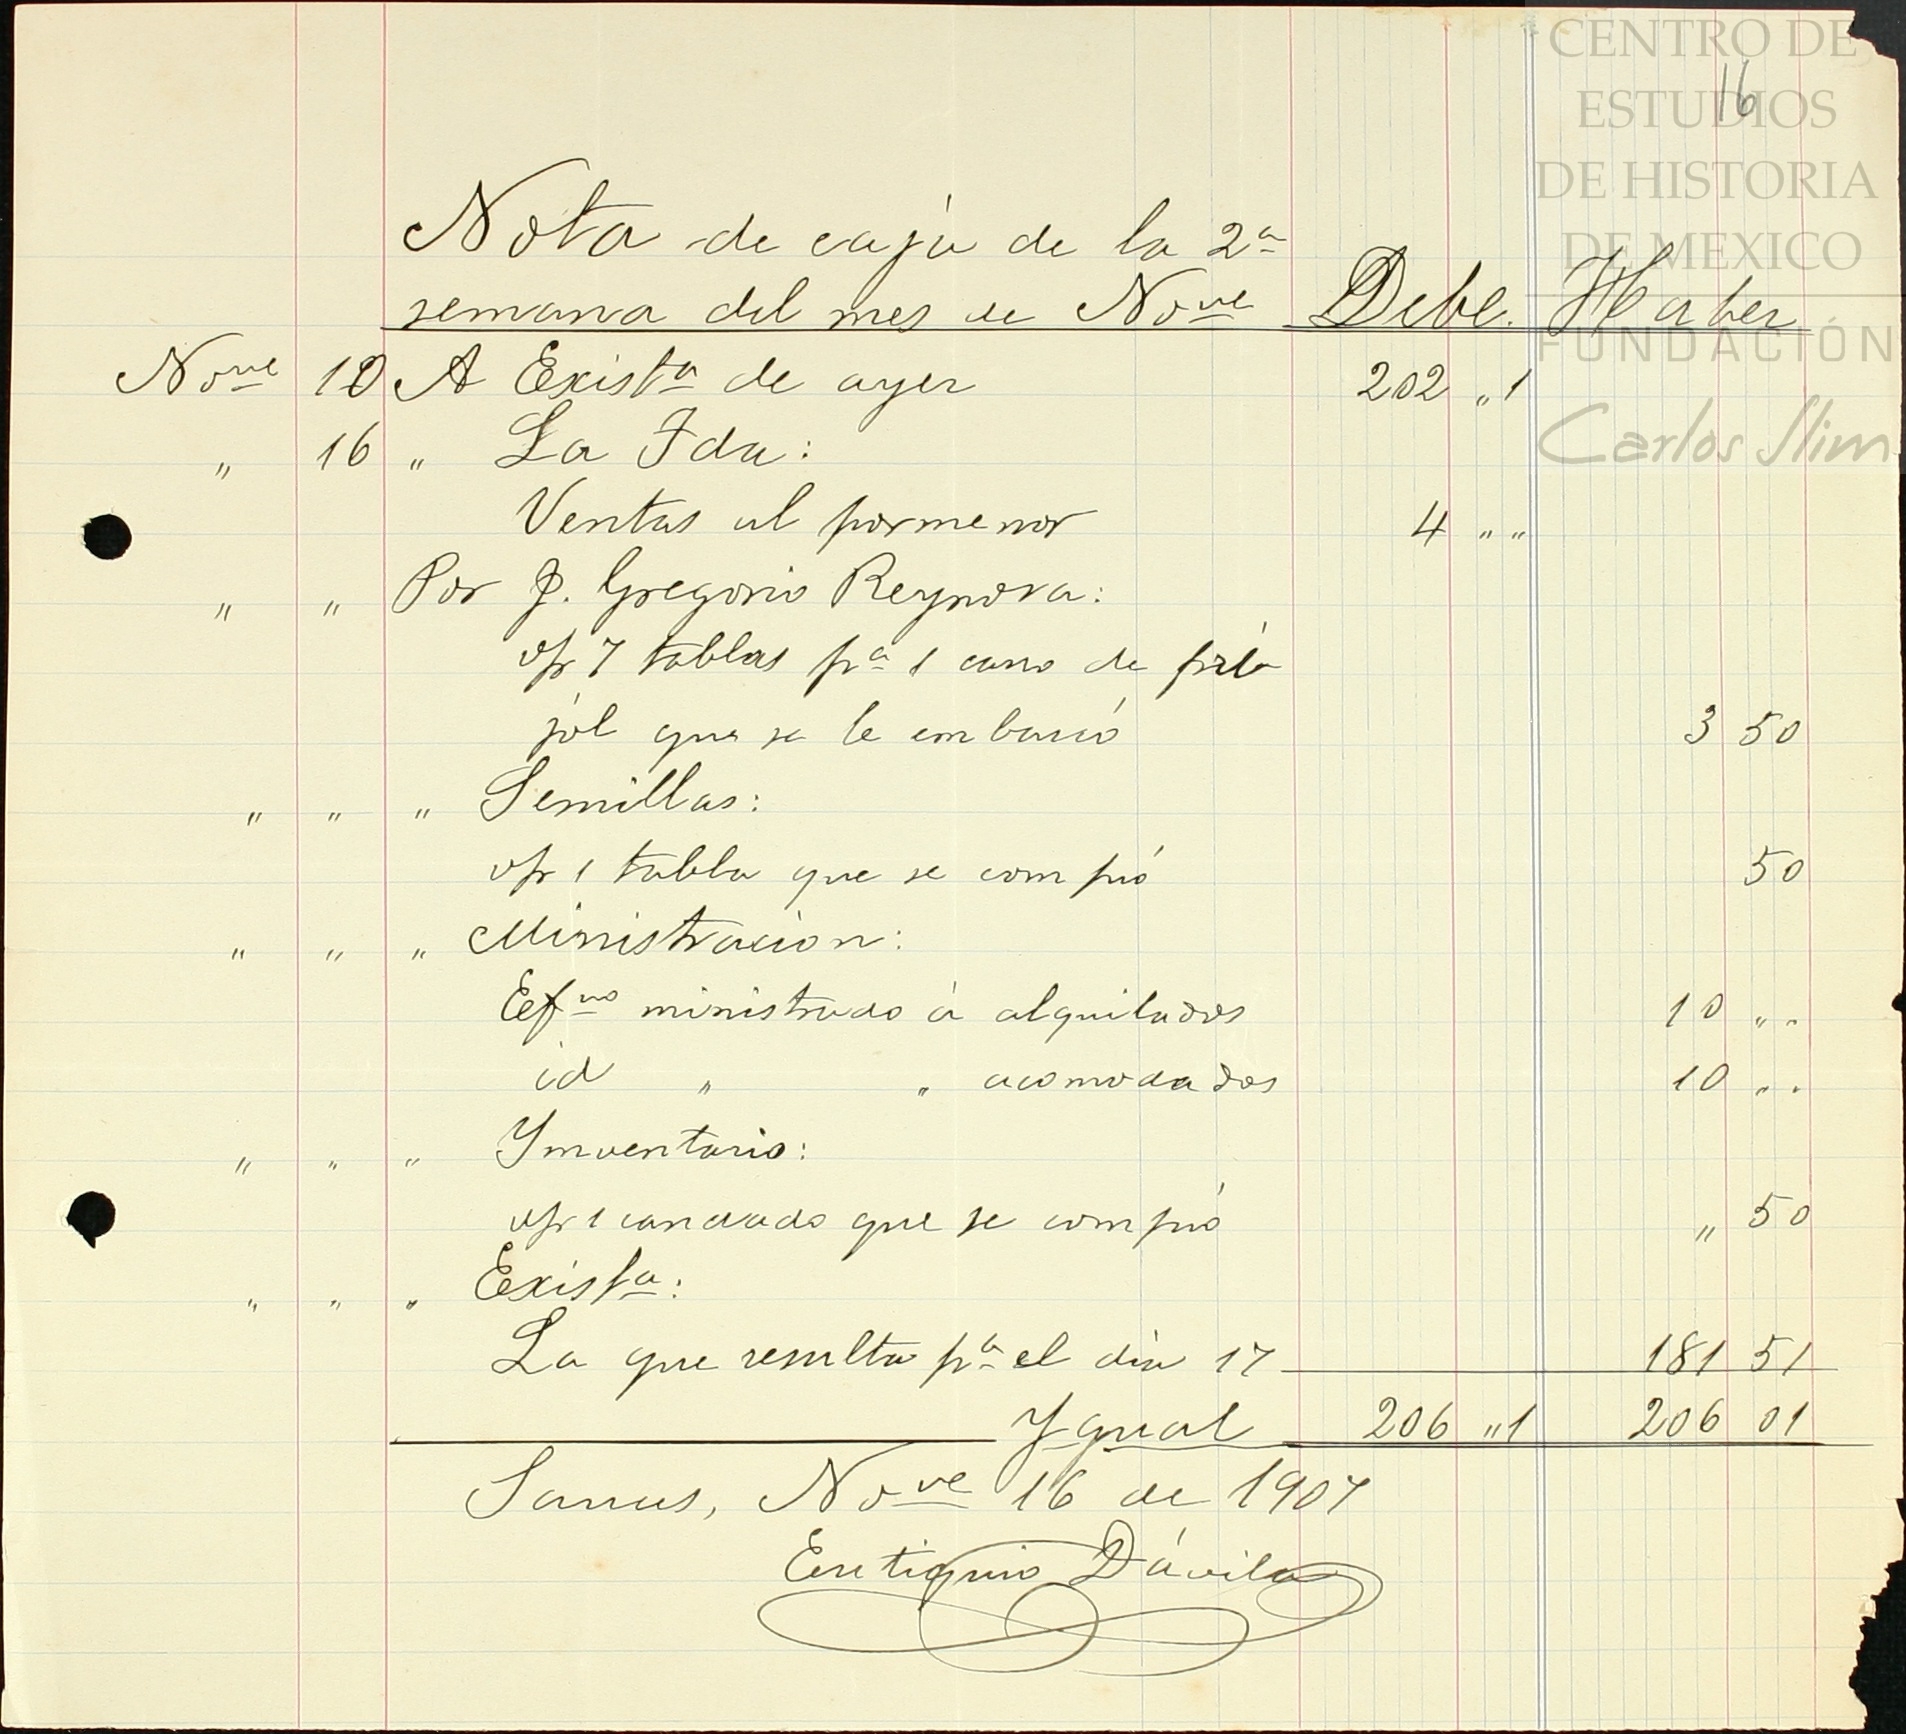 CENTRO DE
ESTUDIOS
DE HISTORIA
DE MEXICO
FUNDACIÓN
Carlos Slim
16
Nota de caja de la 2ª
semana del mes de Nove Debe. Haber
Nove 10 A Existª de ayer 202 „1
„ 16 „ La Ida:
Ventas al pormenor 4 „ „
„ „ Por J. Gregorio Reynosa:
v/r 7 tablas pª 1 carro de frið
jol que se le embarcó 3 50
„ „ „ Semillas:
v/r 1 tabla que se compró 50
„ „ „ Ministracion:
Eefvo ministrado á alquilados 10 „ „
id „ „ acomodados 10 „ „
„ „ „ Ynventario:
v/r 1 candado que se compró „ 50
„ „ „ Existª:
La que resulta pª el dia 17 181 51
Ygual 206 „1 206 01
Saucus, Nove 16 de 1907
Eutiquio Dávila